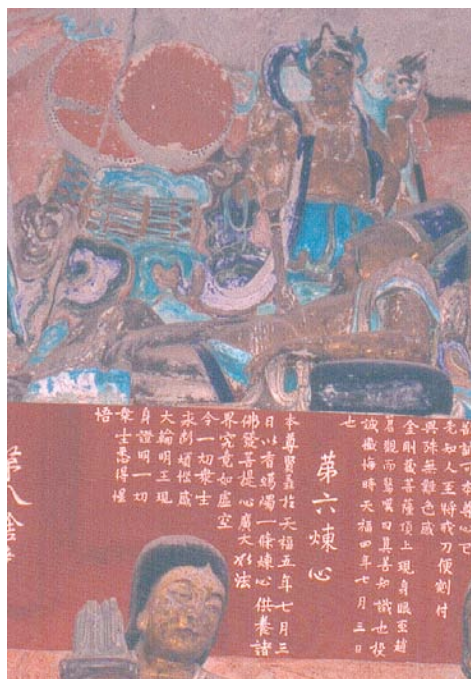 本尊心已
先知人至將戒刀便剜付
與殊無難色感
金剛藏菩薩頂上現身眼至趙
君觀而驚嘆曰真善知識也投
誠懺悔時天福四年七月三日
也
第六煉心
本尊賢聖於天福五年七月三
日以香蠟燭一條煉心供養諸
佛發菩提心廣大如法
界究竟如虛空
令一切衆生
永斷煩惱感
大輪明王現
身證明一切
衆生悉得惺
悟
第八捨